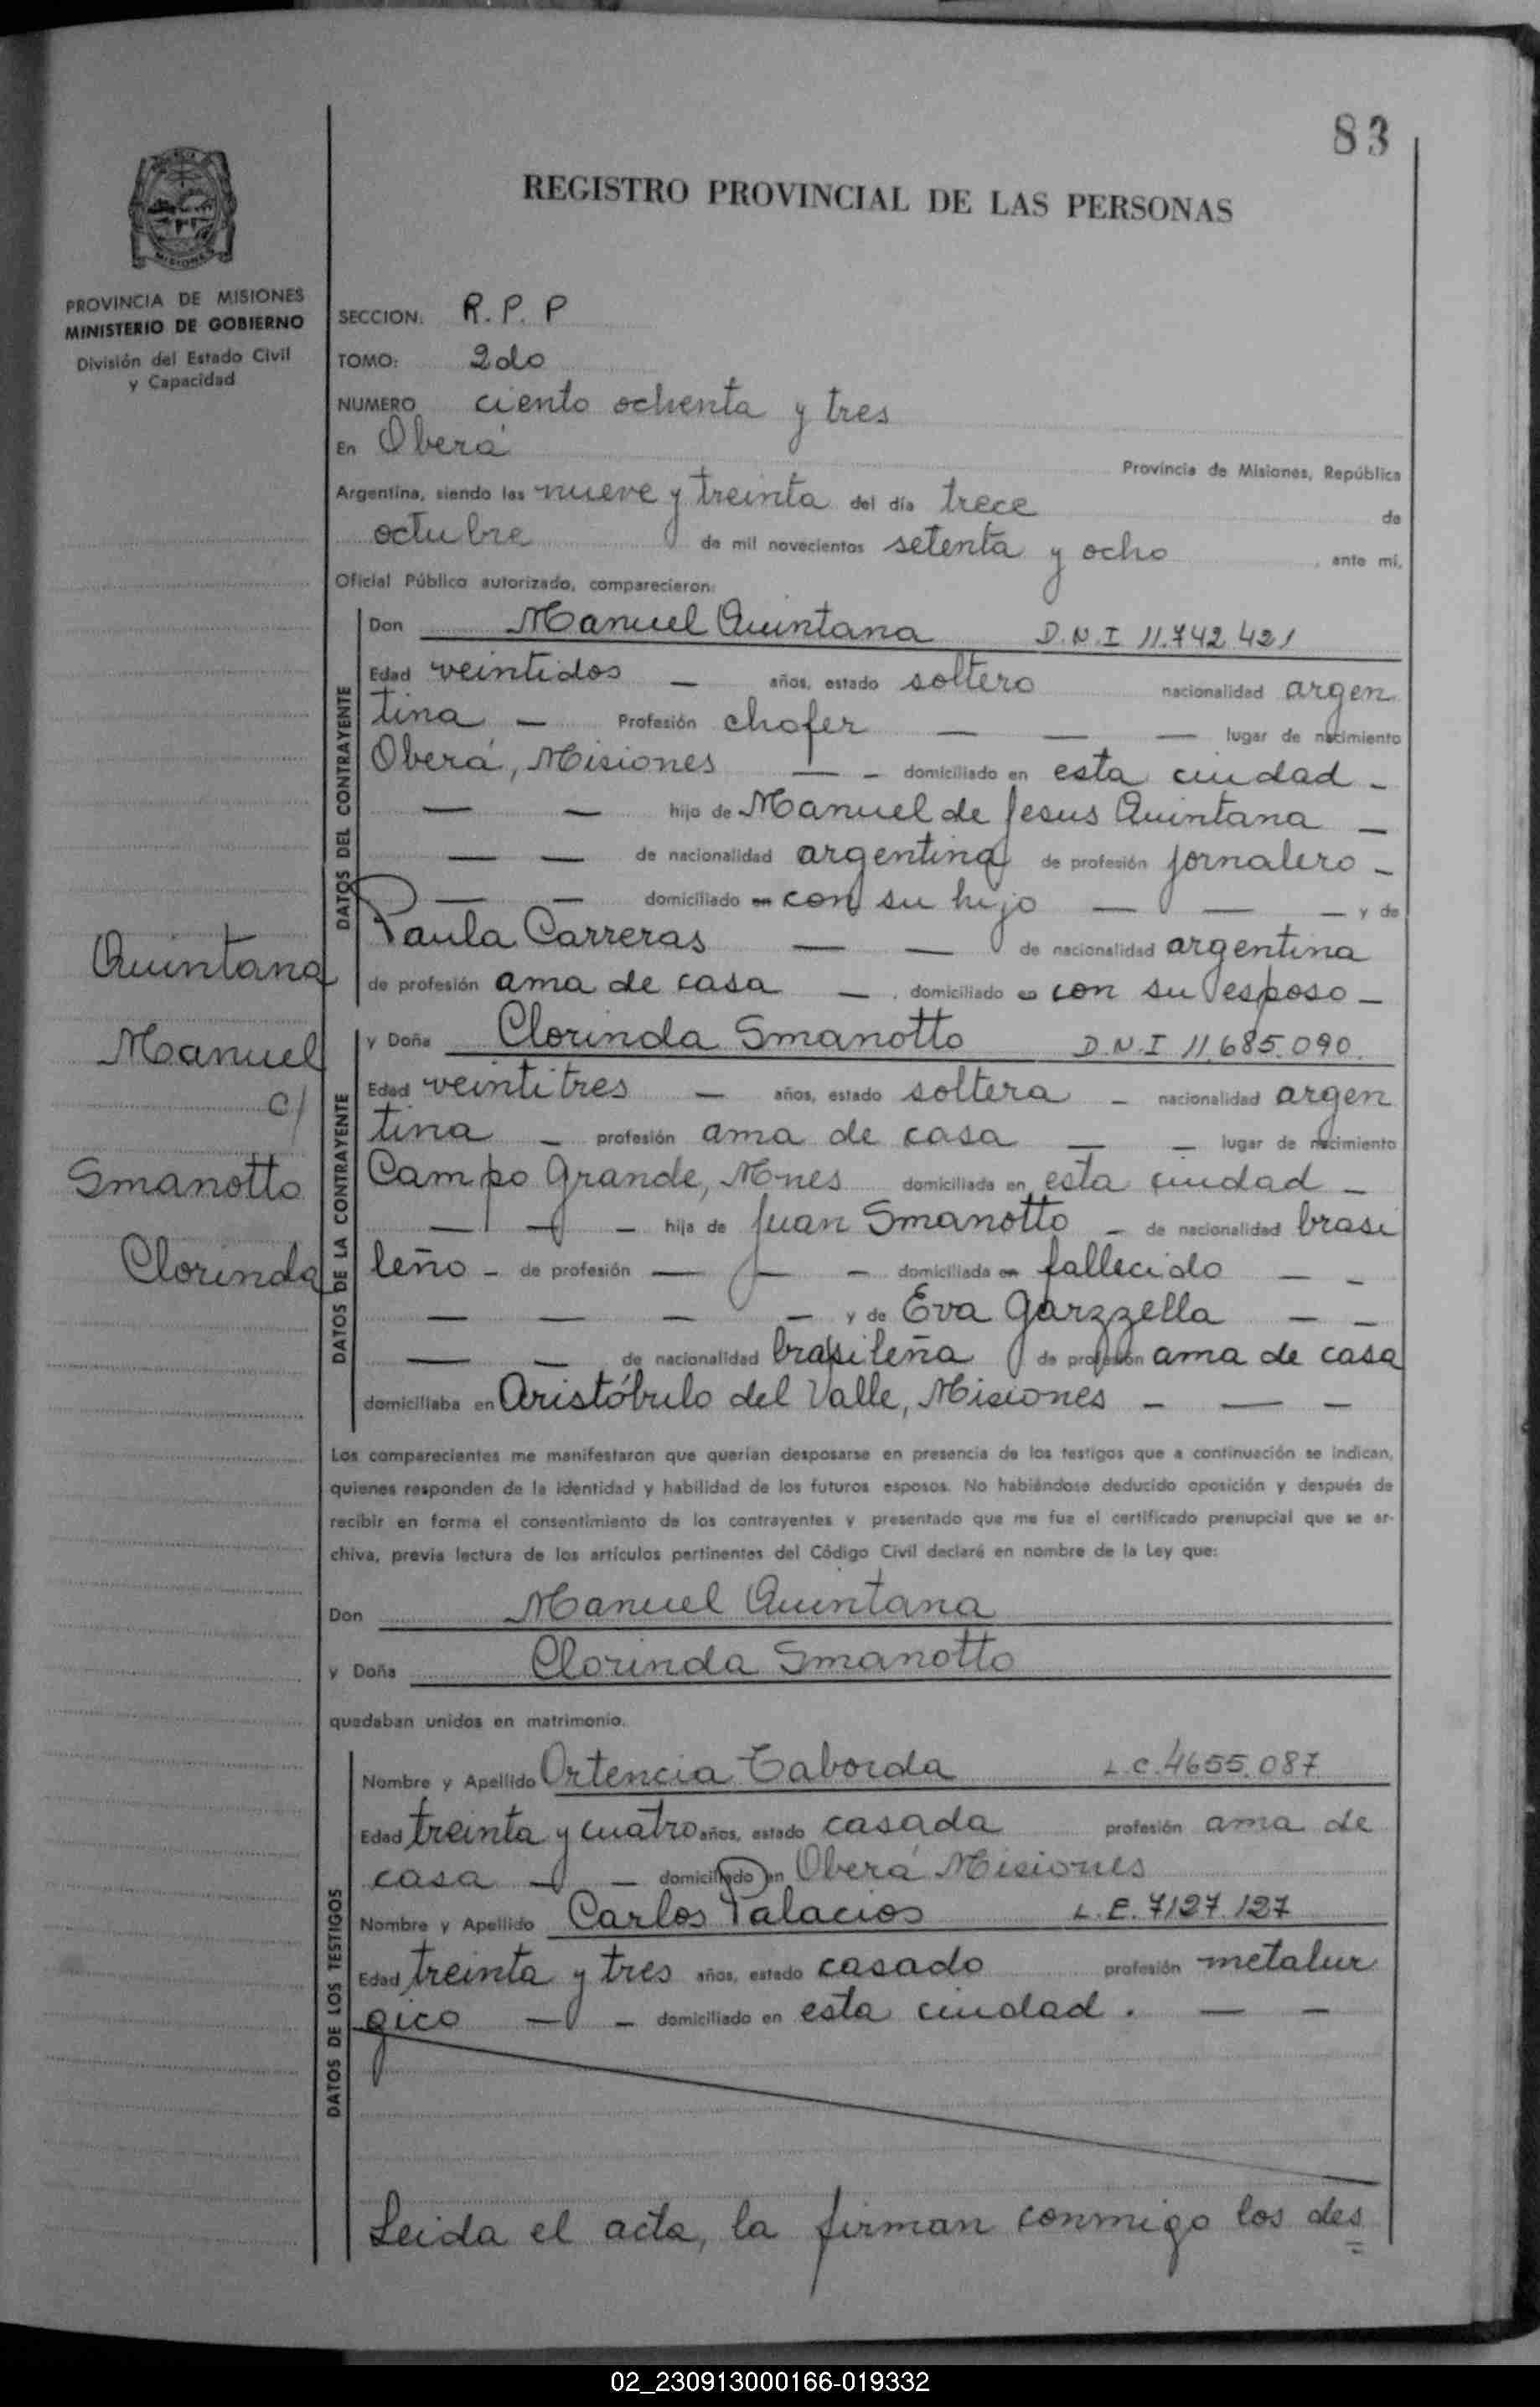 83
REGISTRO PROVINCIAL DE LAS PERSONAS
MISIONES
PROVINCIA DE MISIONES
MINISTERIO DE GOBIERNO
División del Estado Civil
y Capacidad
SECCION: R.P.P
TOMO: 2do
NUMERO ciento ochenta y tres
En Oberá Provincia de Misiones, República
Argentina, siendo las nueve y treinta del día trece de
octubre de mil novecientos setenta y ocho, ante mi,
Oficial Público autorizado, comparecieron:
Quintana
Manuel
c/
Smanotto
Clorinda
DATOS DEL CONTRAYENTE
Don Manuel Quintana D.N.I 11.742.421
Edad veintidos — años, estado soltero nacionalidad argen
tina — Profesión chofer — — — lugar de nacimiento
Oberá, Misiones — - domiciliado en esta ciudad -
— — hijo de Manuel de Jesus Quintana —
— — de nacionalidad argentina de profesión jornalero -
— — domiciliado en con su hijo — — — y de
Paula Carreras — — de nacionalidad argentina
de profesión ama de casa — . domiciliado en con su esposo -
DATOS DE LA CONTRAYENTE
y Doña Clorinda Smanotto D.N.I 11.685.090.
Edad veintitres — años, estado soltera - nacionalidad argen
tina - profesión ama de casa — - lugar de nacimiento
Campo Grande, Mnes domiciliada en esta ciudad -
— — - hija de Juan Smanotto - de nacionalidad brasi
leño - de profesión — — - domiciliada en fallecido — -
— — — — y de Eva Garzzella — -
— — de nacionalidad brasileña de profesión ama de casa
domiciliaba en Aristóbulo del Valle, Misiones - — -
Los comparecientes me manifestaron que querían desposarse en presencia de los testigos que a continuación se indican,
quienes responden de la identidad y habilidad de los futuros esposos. No habiéndose deducido oposición y después de
recibir en forma el consentimiento de los contrayentes y presentado que me fue el certificado prenupcial que se ar-
chiva, previa lectura de los artículos pertinentes del Código Civil declaré en nombre de la Ley que:
Don Manuel Quintana
y Doña Clorinda Smanotto
quedaban unidos en matrimonio.
DATOS DE LOS TESTIGOS
Nombre y Apellido Ortencia Taborda L.C. 4655.087
Edad treinta y cuatro años, estado casada profesión ama de
casa — - domiciliado en Oberá Misiones
Nombre y Apellido Carlos Palacios L.E. 7127.127
Edad treinta y tres años, estado casado profesión metalur
gico — - domiciliado en esta ciudad. — -
Leida el acta, la firman conmigo los des
02_230913000166-019332